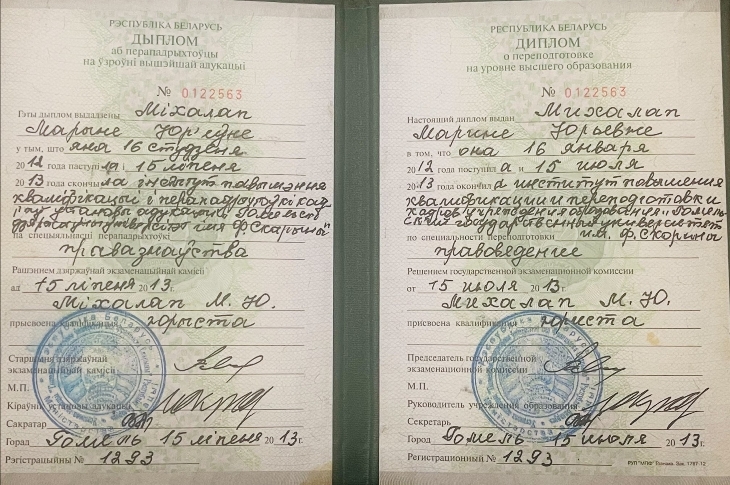 РЭСПУБЛІКА БЕЛАРУСЬ
ДЫПЛОМ
аб перападрыхтоўцы
на ўзроўні вышэйшай адукацыі
№ 0122563
Гэты дыплом выдадзены Міхалап
Марыне Юр'еўне
у тым, што яна 16 студзеня
2012 года паступіла і 15 ліпеня
2013 года скончыла інстытут павышэння
кваліфікацыі і перападрыхтоўкі кад
імя Ф. Скарыны"
па спецыяльнасці перападрыхтоўкі
правазнаўства
Рашэннем дзяржаўнай экзаменацыйнай камісіі
ад 15 ліпеня 2013г.
Міхалап М. Ю.
прысвоена кваліфікацыя юрыста
Старшыня дзяржаўнай
экзаменацыйнай камісіі
М.П.
Кіраўнік установы адукацыі
Сакратар
Горад Гомель 15 ліпеня 2013г.
Рэгістрацыйны № 1293
РЕСПУБЛИКА БЕЛАРУСЬ
ДИПЛОМ
о переподготовке
на уровне высшего образования
№ 0122563
Настоящий диплом выдан Михалап
Марине Юрьевне
в том, что она 16 января
2012 года поступила и 15 июля
2013 года окончила институт повышения
квалификации и переподготовки
кадров учреждения образования "Гомель
ский государственный университет
по специальности переподготовки им. Ф. Скорины"
правоведение
Решением государственной экзаменационной комиссии
от 15 июля 2013г.
Михалап М. Ю.
присвоена квалификация юриста
Председатель государственной
экзаменационной комиссии
М.П.
Руководитель учреждения образования
Секретарь
Город Гомель 15 июля 2013г.
Регистрационный № 1293